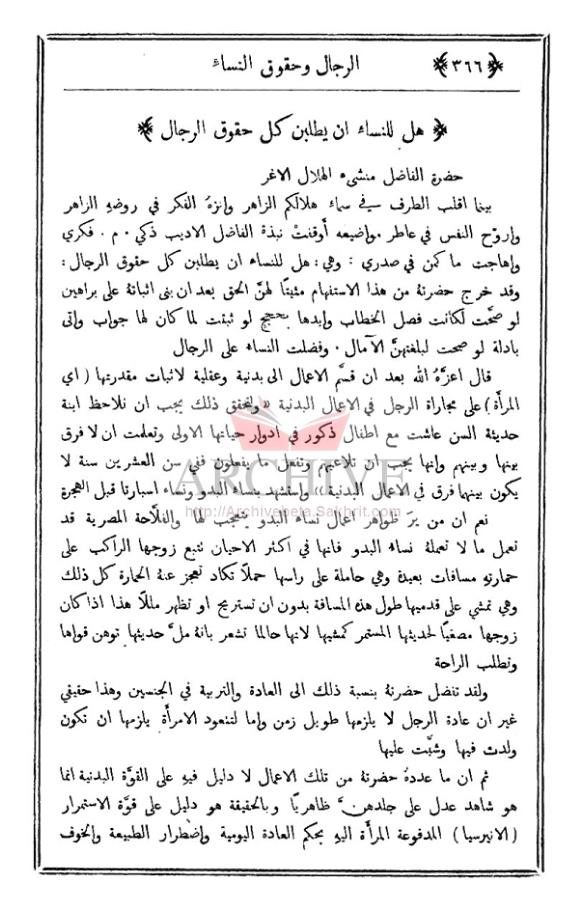 ﴿٣٦٦﴾ الرجال وحقوق النساء
﴿ هل للنساء ان يطلبن كل حقوق الرجال ﴾
حضرة الفاضل منشىء الهلال الاغر
بينما اقلب الطرف في سماء هلالكم الزاهر وانزهُ الفكر في روضهِ الزاهر
واروّح النفس في عاطر مواضيعه أوقفتْ نبذة الفاضل الاديب ذكي ٠ م ٠ فكري
واهاجت ما كمن في صدري : وهي : هل للنساء ان يطلبن كل حقوق الرجال :
وقد خرج حضرتهُ من هذا الاستفهام مثبتًا لهنَّ الحق بعد ان بنى اثباتهُ على براهين
لو صحَّت لكانت فصل الخطاب وايدها بحجج لو ثبتت لما كان لها جواب واتى
بادلة لو صحت لبلغتهنَّ الآمال ٠ وفضلت النساء على الرجال
قال اعزَّهُ الله بعد ان قسَّم الاعمال الى بدنية وعقلية لاثبات مقدرتها ( اي
المرأَة ) على مجاراة الرجل في الاعمال البدنية «ولتحقق ذلك يجب ان نلاحظ ابنة
حديثة السن عاشت مع اطفال ذكور في ادوار حياتها الاولى وتعلمت ان لا فرق
بينها وبينهم وانها يجب ان تلاعبهم وتفعل ما يفعلون ففي سن العشرين سنة لا
يكون بينها فرق في الاعمال البدنية » واستشهد بنساء البدو ونساء اسبارتا قبل الهجرة
ARCHIVE
http://Archivebeta.Sakhrit.com
نعم ان من يرَ ظواهر اعمال نساء البدو يتعجب لها والفلاحة المصرية قد
تعمل ما لا تعملهُ نساء البدو فانها في اكثر الاحيان تتبع زوجها الراكب على
حمارتهِ مسافات بعيدة وهي حاملة على راسها حملًا تكاد تعجز عنهُ الحمارة كل ذلك
وهي تمشي على قدميها طول هذه المسافة بدون ان تستريح او تظهر مللًا هذا اذا كان
زوجها مصغيًا لحديثها المستمر كمشيها لانها حالما تشعر بانهُ ملَّ حديثها توهن قواها
وتطلب الراحة
ولقد تفضل حضرتهُ بنسبة ذلك الى العادة والتربية في الجنسين وهذا حقيقي
غير ان عادة الرجل لا يلزمها طويل زمن واما لتتعود الامرأَة يلزمها ان تكون
ولدت فيها وشبَّت عليها
ثم ان ما عددهُ حضرتهُ من تلك الاعمال لا دليل فيهِ على القوَّة البدنية انما
هو شاهد عدل على جلدهنَّ ظاهريًا وبالحقيقة هو دليل على قوَّة الاستمرار
( الانيرسيا ) المدفوعة المرأَة اليهِ بحكم العادة اليومية واضطرار الطبيعة والخوف